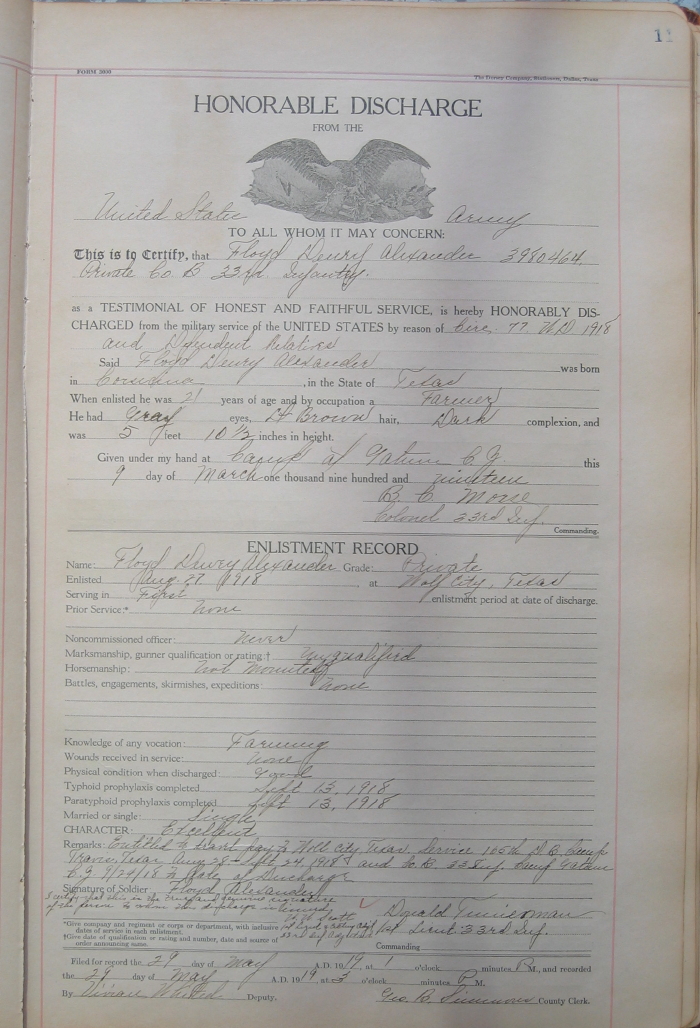 11
FORM 3000
The Dorsey Company, Stationers, Dallas, Texas
HONORABLE DISCHARGE
FROM THE
United States Army
TO ALL WHOM IT MAY CONCERN:
This is to Certify, that Floyd Dewey Alexander 3980464,
Private Co B 33rd Infantry.
as a TESTIMONIAL OF HONEST AND FAITHFUL SERVICE, is hereby HONORABLY DIS-
CHARGED from the military service of the UNITED STATES by reason of Circ. 77. W.D. 1918
and Dependent Relatives
Said Floyd Dewey Alexander was born
in , in the State of Texas
When enlisted he was 21 years of age and by occupation a Farmer
He had Gray eyes, Lt Brown hair, Dark complexion, and
was 5 feet 10 1/2 inches in height.
Given under my hand at Camp at Gatun C.Z. this
9 day of March one thousand nine hundred and nineteen
B. C. Morse
Colonel 33rd Inf.
Commanding.
ENLISTMENT RECORD
Name: Floyd Dewey Alexander Grade: Private
Enlisted Aug. 27 1918 at Wolf City, Texas
Serving in First enlistment period at date of discharge.
Prior Service:* None
Noncommissioned officer: Never
Marksmanship, gunner qualification or rating:† Unqualified
Horsemanship: Not Mounted
Battles, engagements, skirmishes, expeditions: None
Knowledge of any vocation: Farming
Wounds received in service: None
Physical condition when discharged: Good
Typhoid prophylaxis completed Sept 13, 1918
Paratyphoid prophylaxis completed Sept 13, 1918
Married or single: Single
CHARACTER: Excellent
Remarks: Entitled to travel pay to Wolf City, Texas. Service 165th D.B. Camp
Travis, Texas Aug 28 - Sept 24, 1918 and Co. B. 33 Inf. Camp Gatun
C.Z. 9/24/18 to date of Discharge
Signature of Soldier: Floyd Alexander
I certify that this is the true and genuine signature
of the person to whom this discharge is issued,
Donald Timmerman
1st Lieut 33rd Inf.
Commanding
*Give company and regiment or corps or department, with inclusive
dates of service in each enlistment.
†Give date of qualification or rating and number, date and source of
order announcing same.
Filed for record the 29 day of May A.D. 1919, at 1 o'clock minutes P M., and recorded
the 29 day of May A.D. 1919 at 3 o'clock minutes P M.
By Vivian Deputy. Geo. B. Simmons County Clerk.